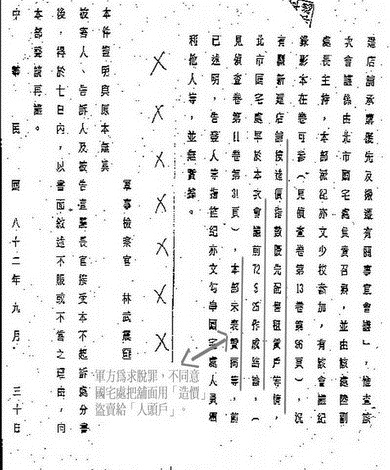 還店舖承購優先及攤還有關事宜會議」，惟查該
次會議係由北市國宅處負責召集，並由該處陸副
處長主持，本部派紀亦文少校參加，有該會議紀
錄影本在卷可參（見偵查卷第13卷第96頁），況
有關新還店舖按造價指數優先配售租賃戶等情，
北市國宅處早於本次會議前72 9 25作成結論，（
見偵查卷第11卷第31頁），本部未表贊同等，前
已述明，告發人等指述紀亦文勾串國宅處人員圖
利他人等，並無實據。
軍事檢察官 林武震
本件證明與原本無異
被害人、告訴人及被告直屬長官接受本不起訴處分書
後，得於七日內，以書面敘述不服或不當之理由，向
本部聲請再議。
中華民國八十二年九月三十日
軍方為求脫罪，不同意
國宅處把舖面用「造價」
盜賣給「人頭戶」。